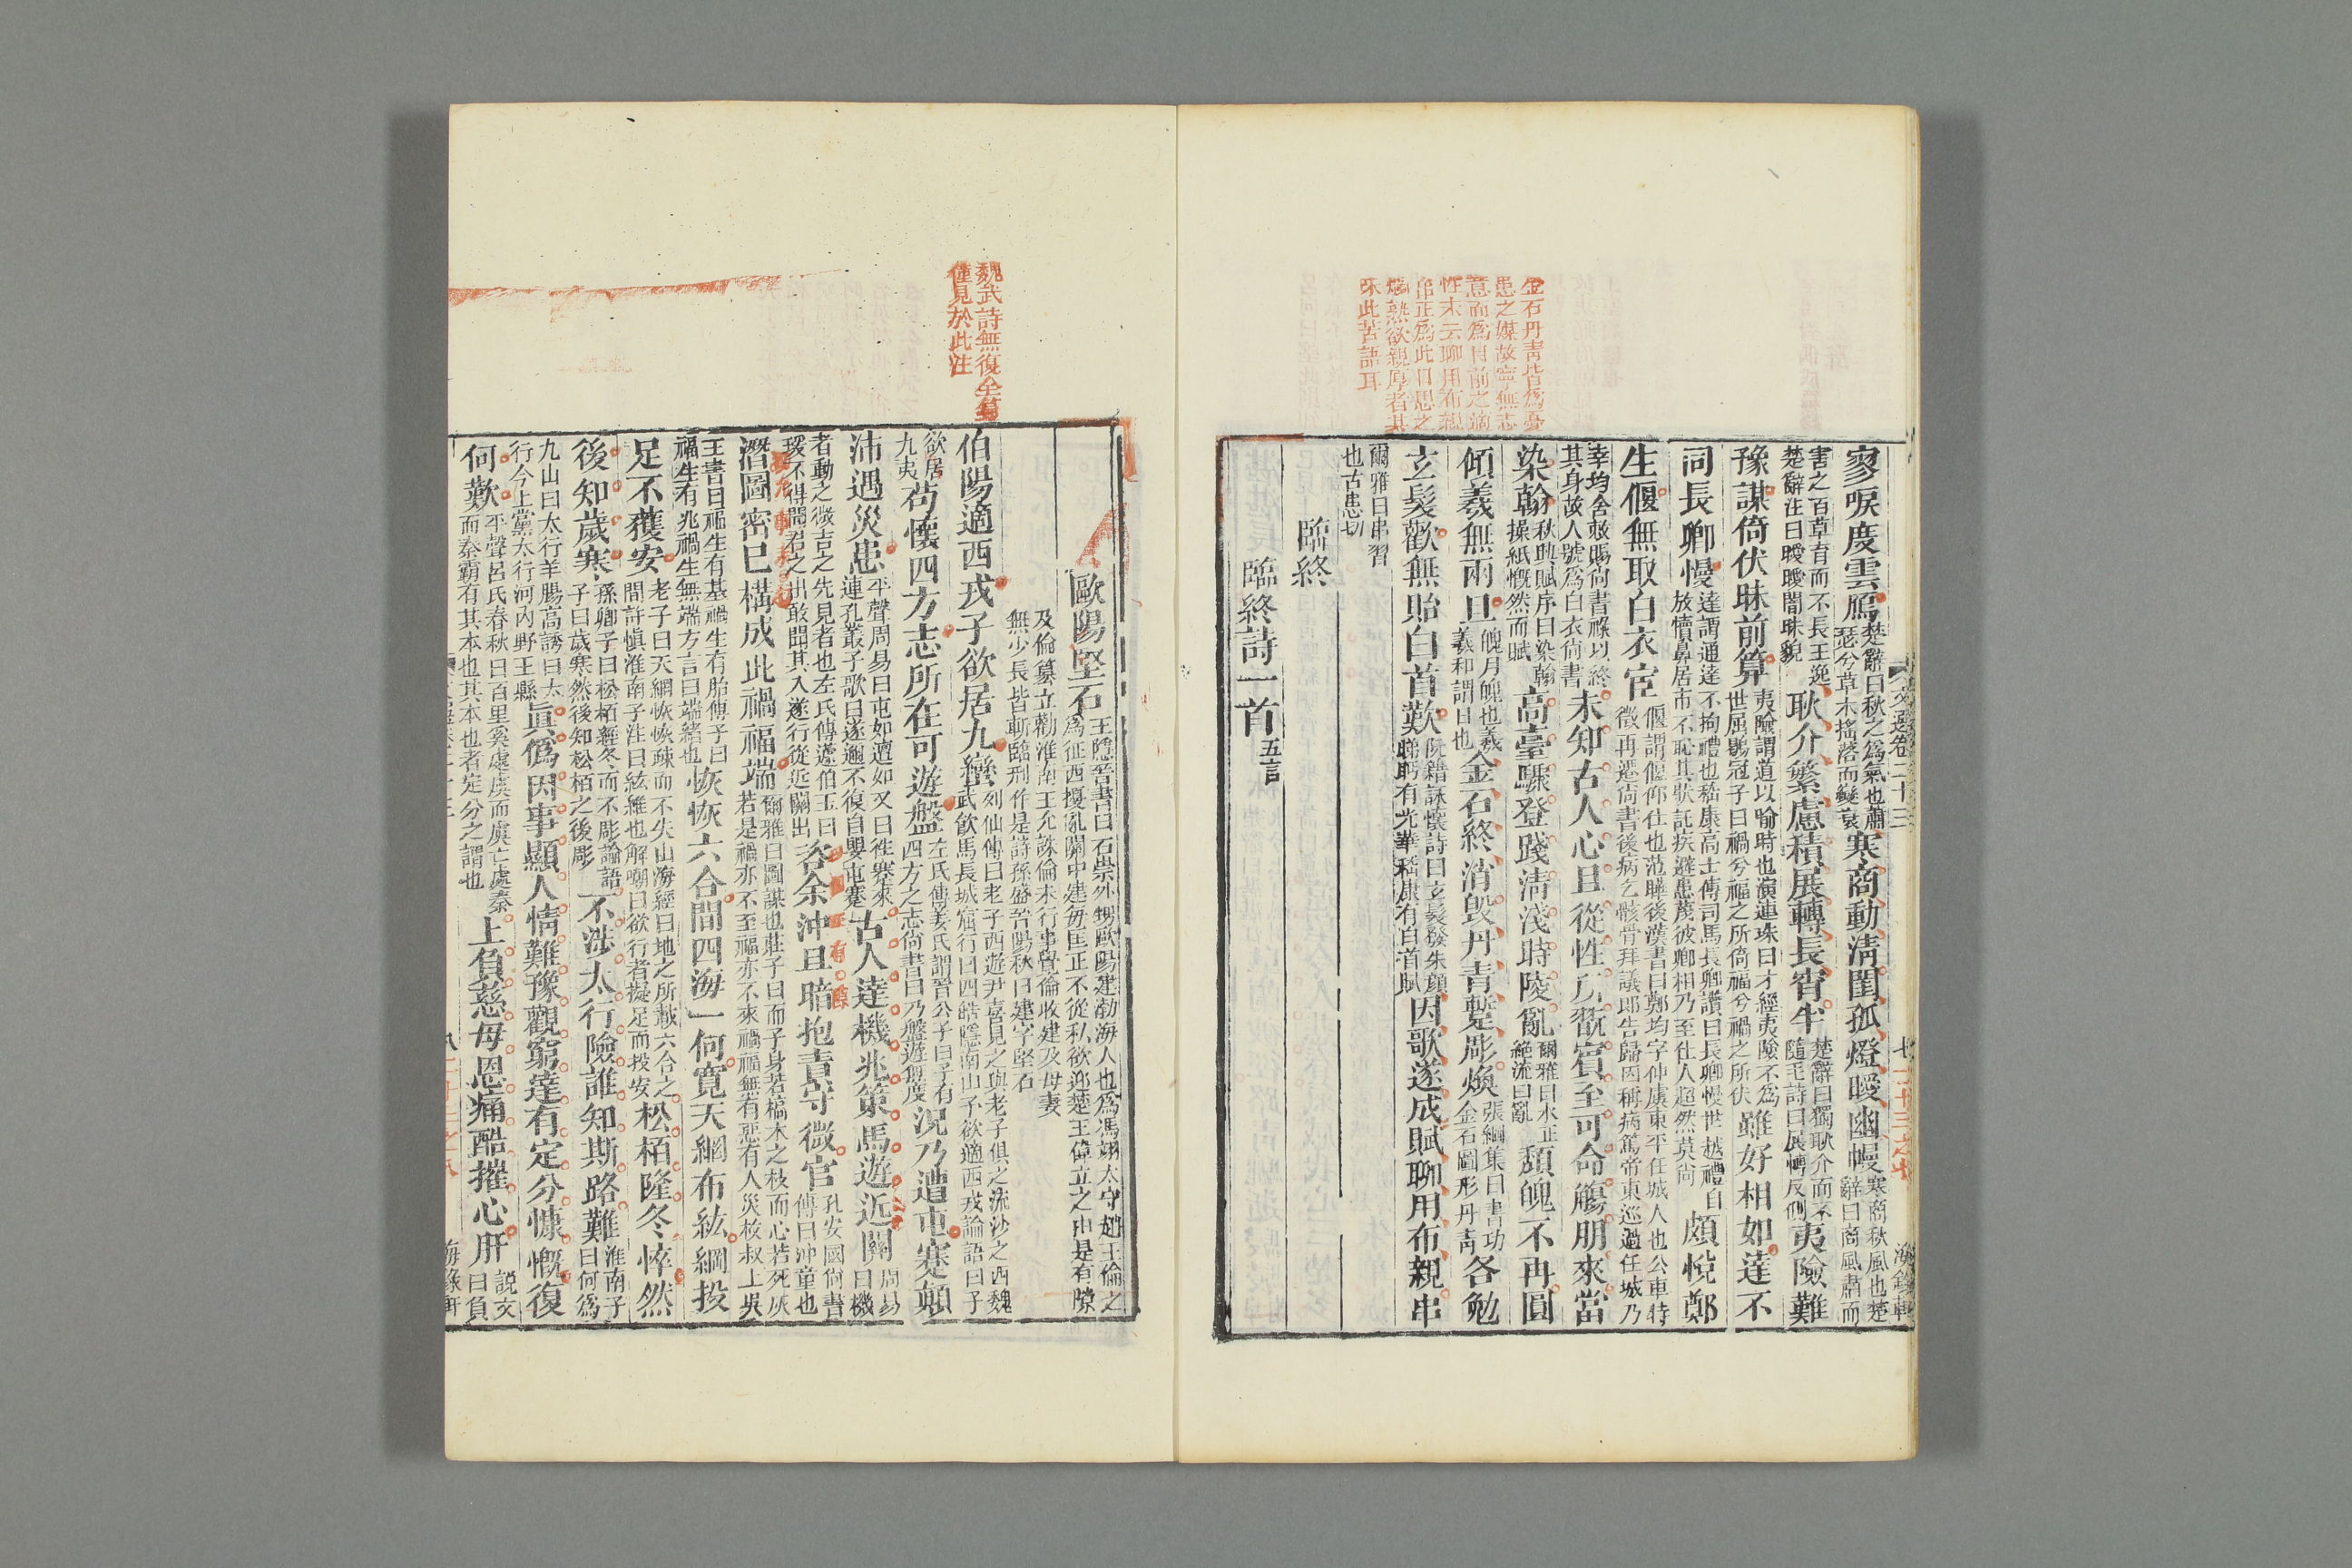 文選卷二十三
寥唳度雲鴈楚辭曰秋之為氣也蕭瑟兮草木搖落而變衰寒商動淸閨孤燈曖幽幔寒商秋風也楚辭曰商風肅而
害之百草育而不長王逸楚辭注曰曖曖闇昧貌耿介繁慮積展轉長宵半楚辭曰獨耿介而不隨毛詩曰展轉反側夷險難
豫謀倚伏昧前算夷險謂道以喻時也演連珠曰才經夷險不為世屈鶡冠子曰禍兮福之所倚福兮禍之所伏雖好相如達不
同長卿慢達謂通達不拘禮也嵇康高士傳司馬長卿讚曰長卿慢世越禮自放犢鼻居市不恥其狀託疾避患蔑彼卿相乃至仕人超然莫尚頗悅鄭
生偃無取白衣宦偃謂偃仰仕也范曄後漢書曰鄭均字仲虞東平任城人也公車特徵再遷尙書後病乞骸骨拜議郎告歸因稱病篤帝東巡過任城乃
幸均舍敕賜尙書祿以終其身故人號為白衣尙書未知古人心且從性所翫賓至可命觴朋來當
染翰秋興賦序曰染翰操紙慨然而賦高臺驟登踐淸淺時陵亂爾雅曰水正絕流曰亂頹魄不再圓
傾羲無兩旦魄月魄也羲羲和謂日也金石終消毀丹靑蹔彫煥張綱集曰書功金石圖形丹靑各勉
玄髮歡無貽白首歎阮籍詠懷詩曰玄髮發朱顏睇眄有光華嵇康有白首賦因歌遂成賦聊用布親串
爾雅曰串習也古患切
臨終
臨終詩一首五言
金石丹靑皆為憂
患之媒故寧無志
意而為目前之適
性末云聊用布親
串正為此日思之
爛熟欲親厚者其
味此苦語耳
歐陽堅石王隱晉書曰石崇外甥歐陽建渤海人也為馮翊太守趙王倫之為征西擾亂關中建每匡正不從私欲迎楚王偉立之由是有隙
及倫篡立勸淮南王允誅倫未行事覺倫收建及母妻無少長皆斬臨刑作是詩孫盛晉陽秋曰建字堅石
伯陽適西戎子欲居九蠻列仙傳曰老子西遊尹喜見之與老子俱之流沙之西魏武飮馬長城窟行曰四皓隱南山子欲適西戎論語曰子
欲居九夷苟懷四方志所在可遊盤左氏傳姜氏謂晉公子曰子有四方之志尙書曰乃盤遊無度況乃遭屯蹇顚
沛遇災患平聲周易曰屯如邅如又曰往蹇來連孔叢子歌曰遂邅不復自嬰屯蹇古人達機兆策馬遊近關周易曰機
者動之微吉之先見者也左氏傳蘧伯玉曰瑗不得聞君之出敢聞其入遂行從近關出咨余沖且暗抱責守微官孔安國尙書傳曰沖童也
潛圖密已構成此禍福端爾雅曰圖謀也莊子曰而子身若槁木之枝而心若死灰若是禍亦不至福亦不來禍福無有惡有人災枚叔上吳
王書曰福生有基禍生有胎傅子曰福生有兆禍生無端方言曰端緒也恢恢六合間四海一何寬天網布紘綱投
足不獲安老子曰天網恢恢疎而不失山海經曰地之所載六合之間許愼淮南子注曰紘維也解嘲曰欲行者擬足而投安松栢隆冬悴然
後知歲寒孫卿子曰松栢經冬而不彫論語子曰歲寒然後知松栢之後彫不涉太行險誰知斯路難淮南子曰何為
九山曰太行羊腸高誘曰太行今上黨太行河內野王縣眞僞因事顯人情難豫觀窮達有定分慷慨復
何歎平聲呂氏春秋曰百里奚處虞而虞亡處秦而秦霸有其本也其本也者定分之謂也上負慈母恩痛酷摧心肝說文曰負
海錄軒
魏武詩無復全篇
僅見於此注